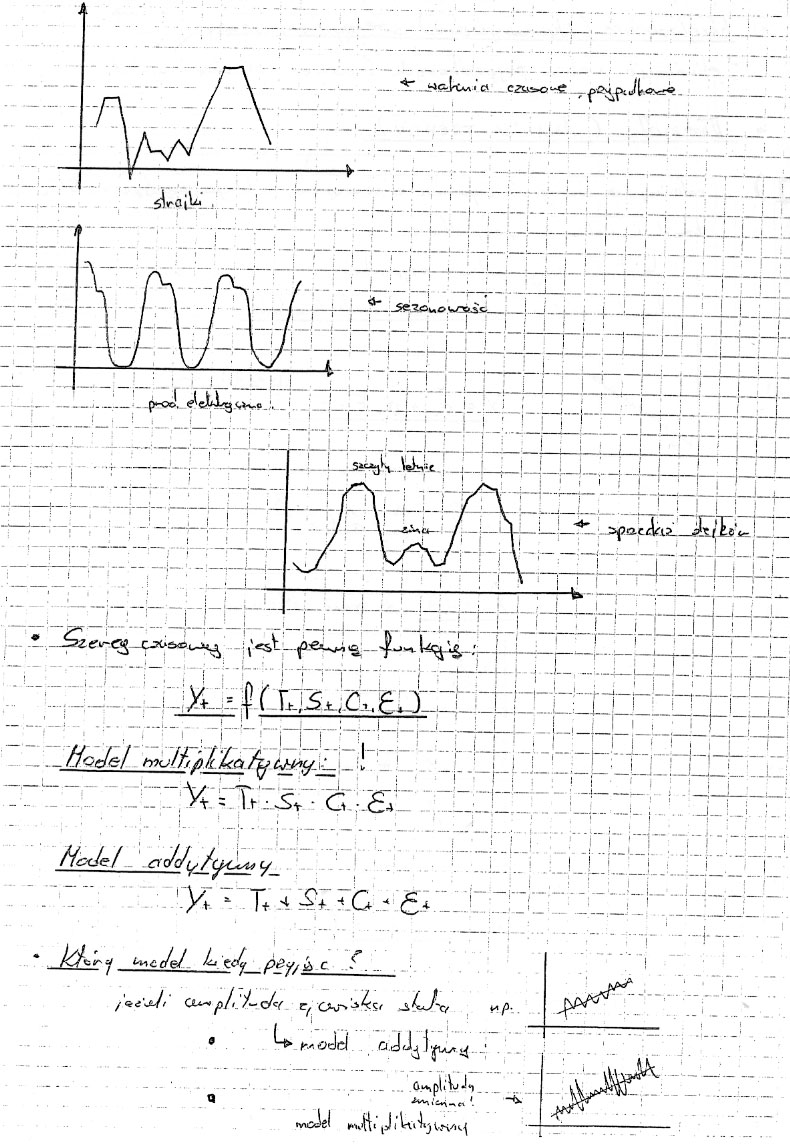 ← wahania czasowe, przypadkowe
strajki
← sezonowość
prod. elektryczna.
szczyty letnie
zima
←
• Szereg czasowy jest pewną funkcją:
Yt = f(Tt, St, Ct, Ɛt)
Model multiplikatywny: !
Yt = Tt · St · Ct · Ɛt
Model addytywny
Yt = Tt + St + Ct + Ɛt
• Który model kiedy przyjąć?
jeżeli amplituda zjawiska stała np.
↳ model addytywny
amplituda
zmienna! →
model multiplikatywny